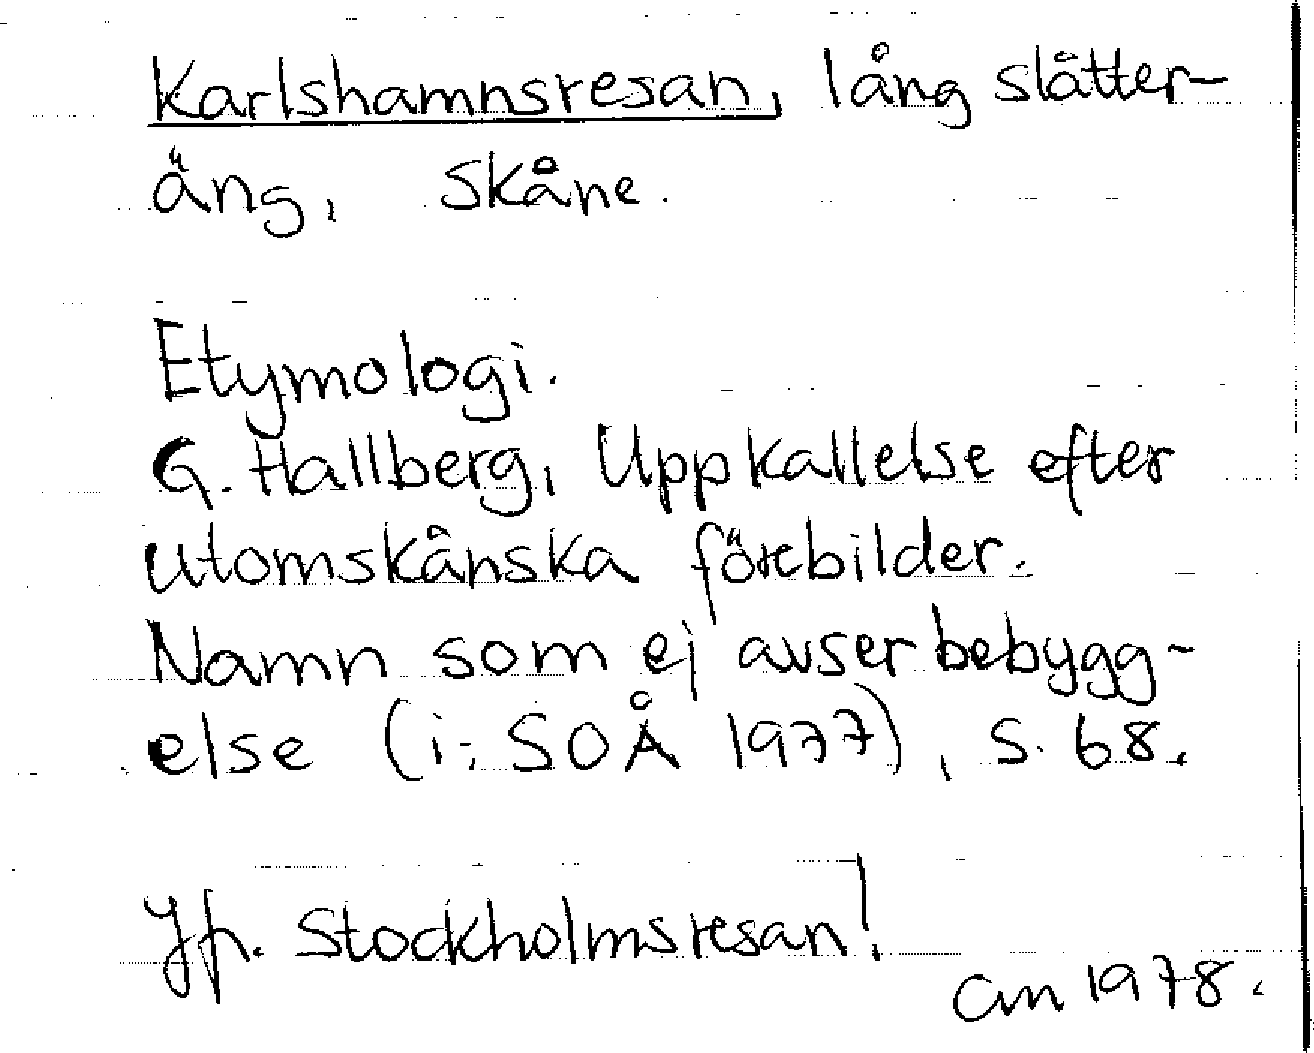 Karlshamnsresan, lång slåtter-
äng, Skåne.
Etymologi.
G. Hallberg, Uppkallelse efter
utomskånska förebilder.
Namn som ej avser bebygg-
else (i: SOÅ 1977), s. 68.
Jfr. Stockholmsresan!
am 1978.